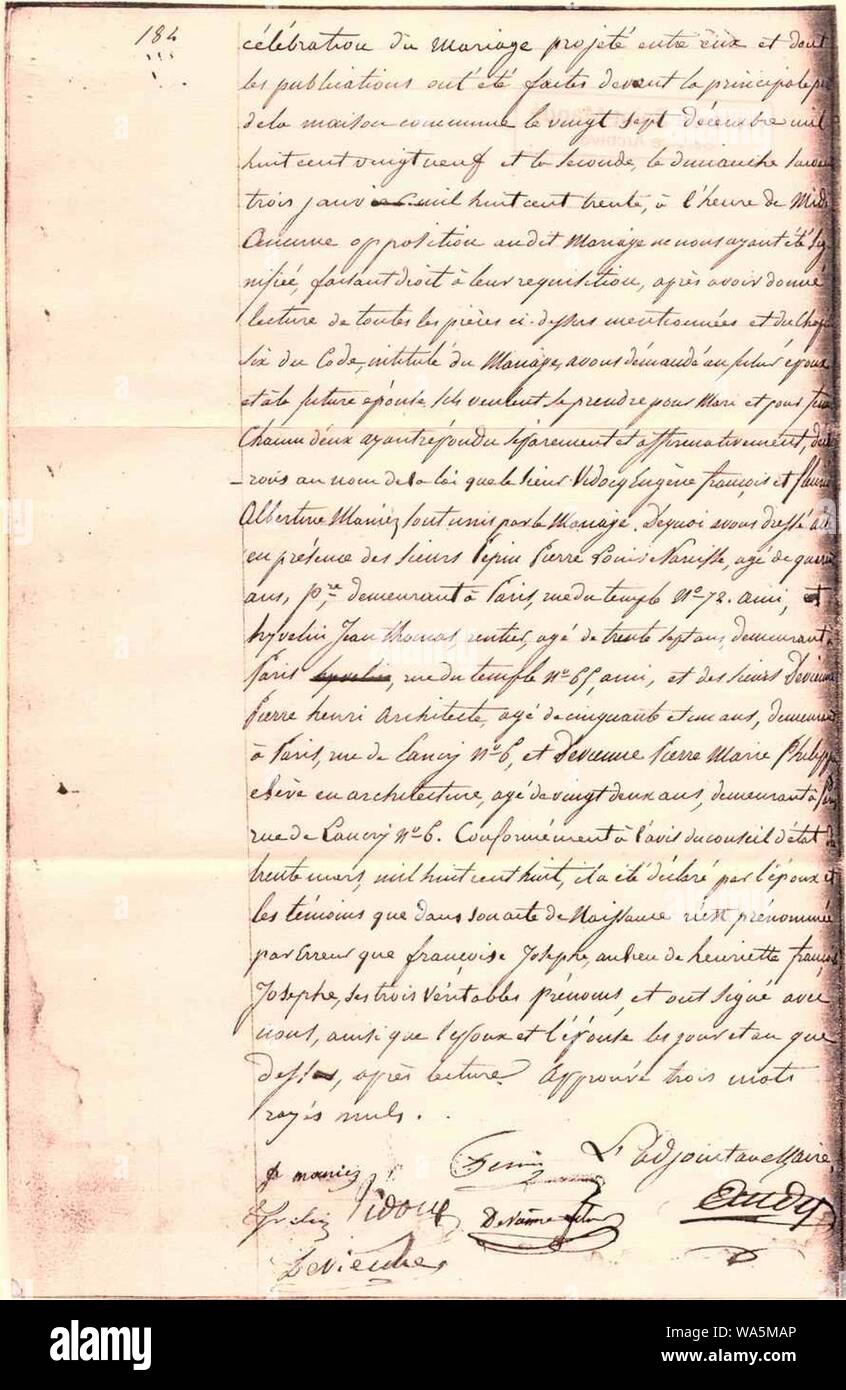 184
célébration du Mariage projeté entre eux et dont
les publications ont été faites devant la principale
de la maison commune le vingt sept décembre mil
huit cent vingt neuf et la seconde, le dimanche
trois janvier mil huit cent trente, à l'heure de Midi
Aucune opposition audit Mariage ne nous ayant été sig
nifiée, faisant droit à leur requisition, après avoir donné
lecture de toutes les pièces ci-dessus mentionnées et du Chap
six du Code, intitulé du Mariage, avons demandé au futur époux
et à la future épouse s'ils veulent se prendre pour Mari et pour
Chacun d'eux ayant répondu séparement et affirmativement,
rons au nom de la loi que le sieur Vidocq Eugène françois et
Albertine Maniez sont unis par le Mariage. De quoi avons dressé
en présence des sieurs Pépin Pierre Louis Narcisse, agé de
ans, pre demeurant à Paris, rue du temple No 72. ami, et
hyvelin Jean thomas, rentier, agé de trente sept ans, demeurant
Paris, rue du temple No 65, ami, et des sieurs Devienne
Pierre henri Architecte, agé de cinquante et un ans,
à Paris, rue de Lancry No 6, et Devienne Pierre Marie Philippe
elève en architecture, agé de vingt deux ans, demeurant à
rue de Lancry No 6. Conformément à l'avis du conseil d'état du
trente mars, mil huit cent huit, il a été déclaré par l'époux et
les témoins que dans son acte de Naissance n'est prénommée
par Erreur que françoise Josephe, au lieu de henriette
Josephe, ses trois véritables prénoms, et ont signé avec
nous, ainsi que l'époux et l'épouse les jour et an que
dessus, après lecture. Approuvé trois mots
rayés nuls.
L'adjoint au Maire,
f maniez
Vidocq
Devienne
a
alamy
alamy
Image ID: WA5MAP
www.alamy.com